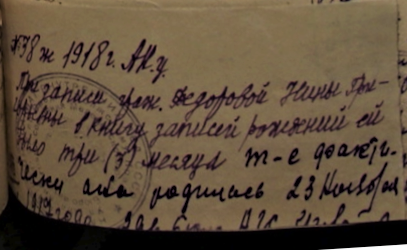 № 78 ж 1918 г. АК.у.
При записи граж. Федоровой Нины Гри-
в книгу записей рождений ей
было три (3) месяца т-е факти-
чески она родилась 23 Ноября
1917 года